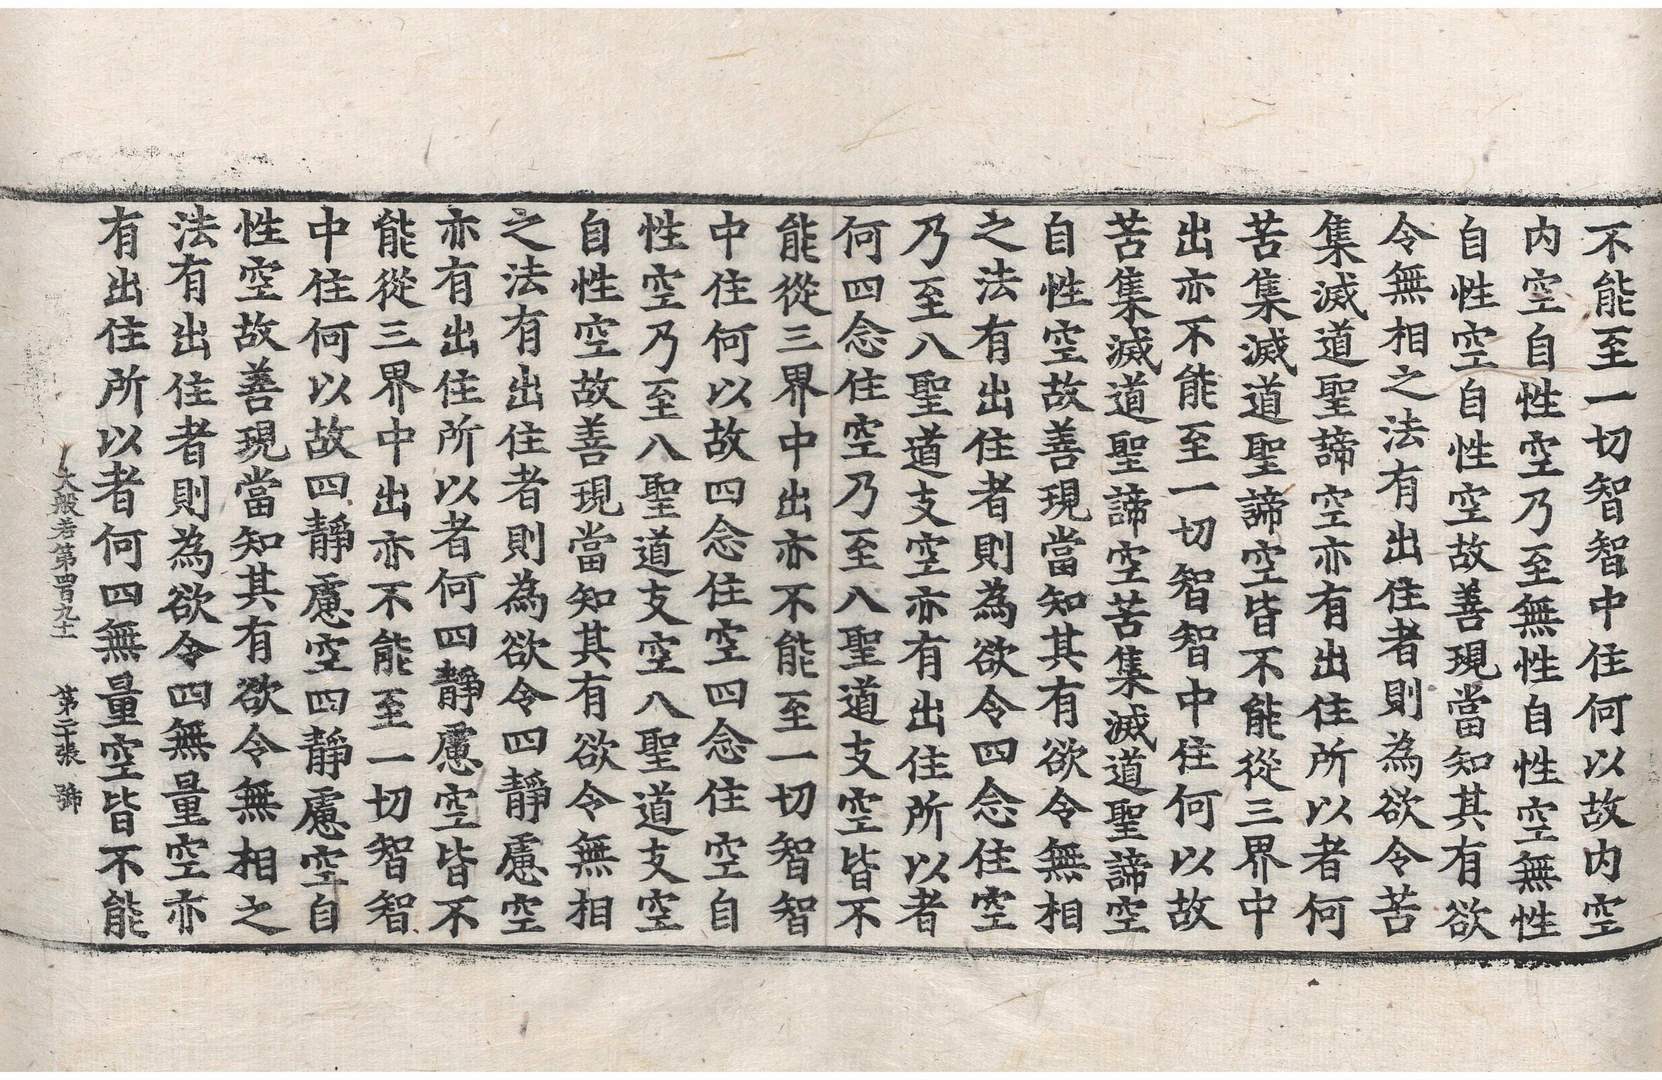 不能至一切智智中住何以故内空
内空自性空乃至無性自性空無性
自性空自性空故善現當知其有欲
令無相之法有出住者則為欲令苦
集滅道聖諦空亦有出住所以者何
苦集滅道聖諦空皆不能從三界中
出亦不能至一切智智中住何以故
苦集滅道聖諦空苦集滅道聖諦空
自性空故善現當知其有欲令無相
之法有出住者則為欲令四念住空
乃至八聖道支空亦有出住所以者
何四念住空乃至八聖道支空皆不
能從三界中出亦不能至一切智智
中住何以故四念住空四念住空自
性空乃至八聖道支空八聖道支空
自性空故善現當知其有欲令無相
之法有出住者則為欲令四靜慮空
亦有出住所以者何四靜慮空皆不
能從三界中出亦不能至一切智智
中住何以故四靜慮空四靜慮空自
性空故善現當知其有欲令無相之
法有出住者則為欲令四無量空亦
有出住所以者何四無量空皆不能
大般若第四百九十一 第二十張 號